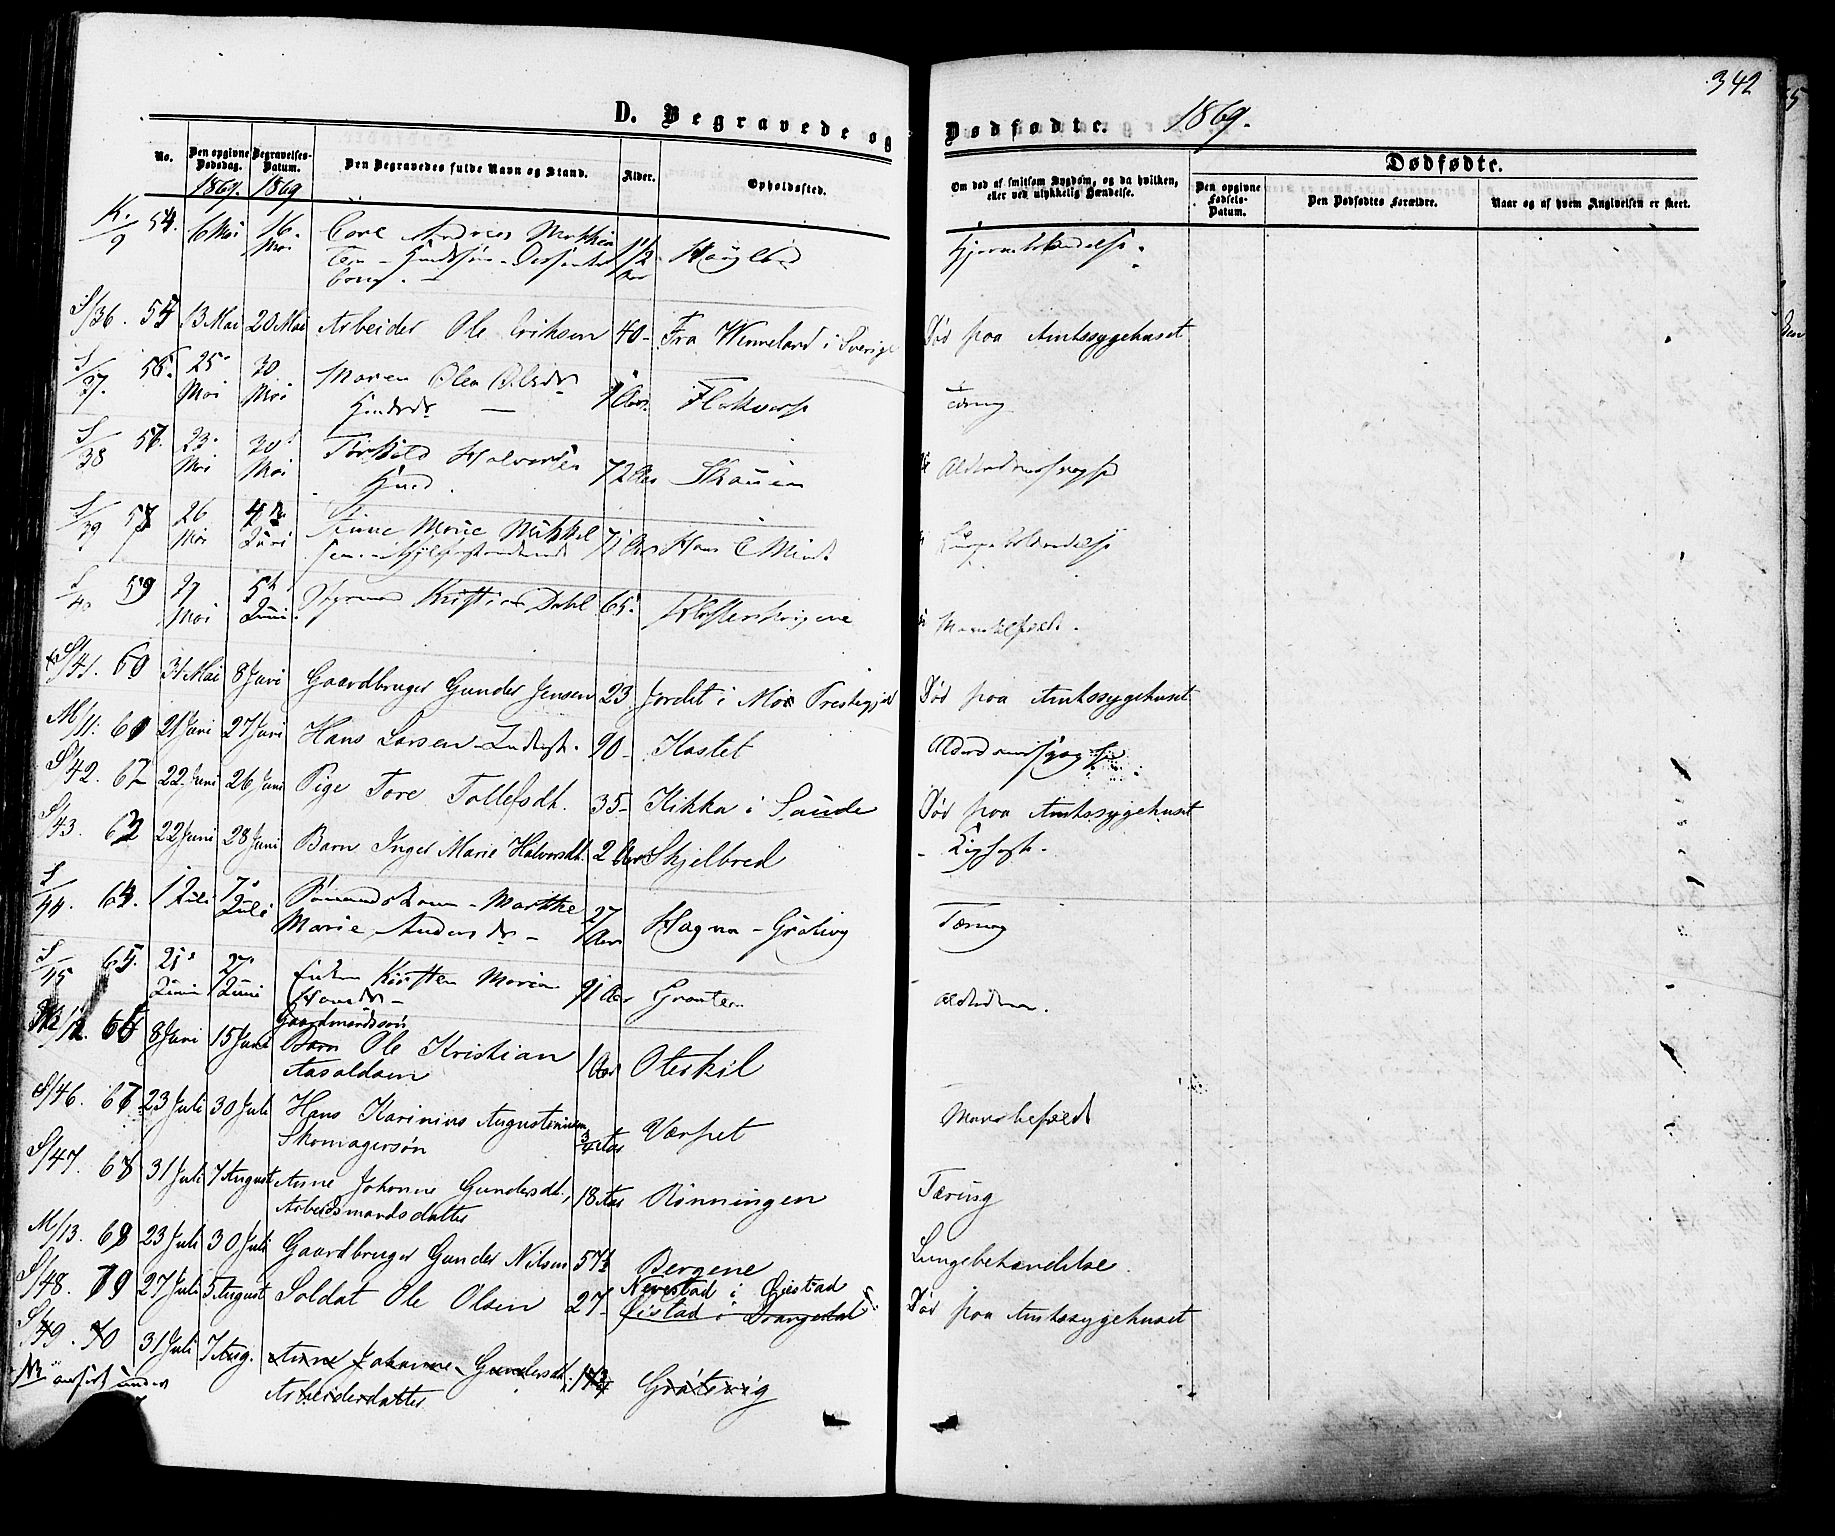 342
D. Begravede og Dødfødte. 1869.
No. Den opgivne Dødsdag. Begravelses-Datum. Den Begravedes fulde Navn og Stand. Alder. Opholdssted. Om død af smitsom Sygdom, og da hvilken, eller ved ulykkelig Hændelse. Dødfødte.
1869. 1869
Den opgivne Fødsels-Datum. Den Dødfødtes Forældre. Naar og af hvem Angivelsen er skeet.
K./9 54. 6 Mai 16. Mai
S/36. 55 13 Mai 20 Mai Arbeider Ole Eriksen 40- Fra Wermeland i Sverige Død paa Amtssygehuset
S/37. 56. 25. Mai 30 Mai Maren Olea Olsdr Husdr Aar. Tæring
S/38 57. 23. Mai 30 Mai Halvorsen Husd. 72 Aar Skauen Alderdomssvaghed
S/39 58 26 Mai 4 Juni Anne Marie Mikkel 71 Aar
S/40 59 27 Mai 5te Juni Kristian Dahl 65. Klosterskogene
S/41. 60 31 Mai 8 Juni Gaardbruger Gunder Jensen 23 Jordet i Mo Prestegjeld Død paa Amtssygehuset
M/11. 61 21 Juni 27 Juni Hans Larsen Inderst. 90- Kastet Alderdomssvaghed
S/42. 62 22 Juni 26 Juni Pige Tore Tollefsdt. 35- Kikka i Saude Død paa Amtssygehuset
S/43. 63 22 Juni 28 Juni Barn Inger Marie Halvorsdt. 2 Aar Skjelbred - Kighoste.
S/44. 64. 1 Juli 7 Juli Sømandskone - Marthe
Marie Andersdr - 27 Aar Hagna - Gråtevig Tæring
S/45 65. 21 Juni 27 Juni Enken Kirsten Maria
Hansdr - 91 Aar Graaten Alderdom.
Gaardmandssøn
M/12. 66 8 Juni 15 Juni Barn Ole Kristian
Aasoldsen 1 Aar Oteskil
S/46. 67 23 Juli 30 Juli Hans Karinius Augustinusen
Skomagersøn 3/4 Aar Værpet Mavebefæld
S/47. 68 31 Juli 7 August Anne Johanne Gundersdt,
Arbeidsmandsdatter 18 Aar Rønningen Tæring
M/13. 69 23 Juli 30 Juli Gaardbruger Gunder Nilsen 57½ Bergene Lungebetændelse.
S/48. 70 27 Juli 5 August Soldat Ole Olsen 27- Nevestad i Gjestad
Gjestad i Drangedal Død paa Amtssygehuset
S/49. 70 31 Juli 7 Aug. Anne Johanne Gundersdt.
Arbeiderdatter Gråtevig
NB anført under